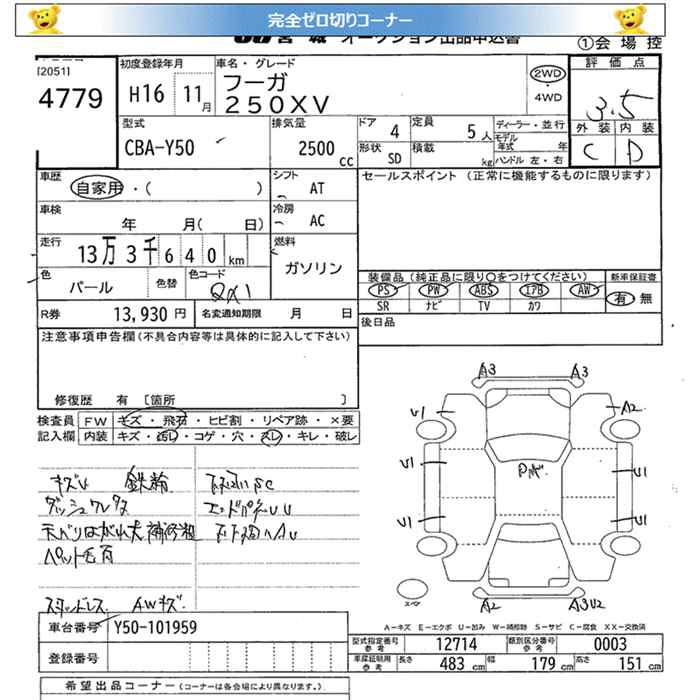 完全ゼロ切りコーナー
宮城 オークション出品申込書
①会場控
[2051]
4779
初度登録年月
H16 11月
車名・グレード
フーガ
250XV
2WD
・
4WD
評価点
3.5
外装 内装
C D
型式
CBA-Y50
排気量
2500 cc
ドア 4
形状 SD
定員 5人
積載 kg
ディーラー・並行
モデル年式 年
ハンドル 左・右
車歴
自家用・( )
シフト
AT
車検
年 月( 日)
冷房
AC
走行
13万3千640km
燃料
ガソリン
色
パール
色替
色コード
QX1
R券 13,930円
名変通知期限 月 日
セールスポイント (正常に機能するものに限ります)
装備品(純正品に限り○をつけてください) 新車保証書
PS PW ABS エアB AW 有・無
SR ナビ TV カワ
後日品
注意事項申告欄(不具合内容等は具体的に記入して下さい)
修復歴 有 [箇所 ]
検査員記入欄
FW キズ・飛石・ヒビ割・リペア跡・×要
内装 キズ・汚レ・コゲ・穴・スレ・キレ・破レ
鉄輪
ペット毛有
スタッドレス AWキズ
車台番号 Y50-101959
登録番号
希望出品コーナー(コーナーは各会場により異なります。)
A3 A3
U1 A2
U1 U1
U1 U1
A2 A3U2
スペア
A−キズ E−エクボ U−凹み W−補修跡 S−サビ C−腐食 XX−交換済
型式指定番号 12714 類別区分番号 0003
車庫証明用参考 長さ 483cm 幅 179cm 高さ 151cm